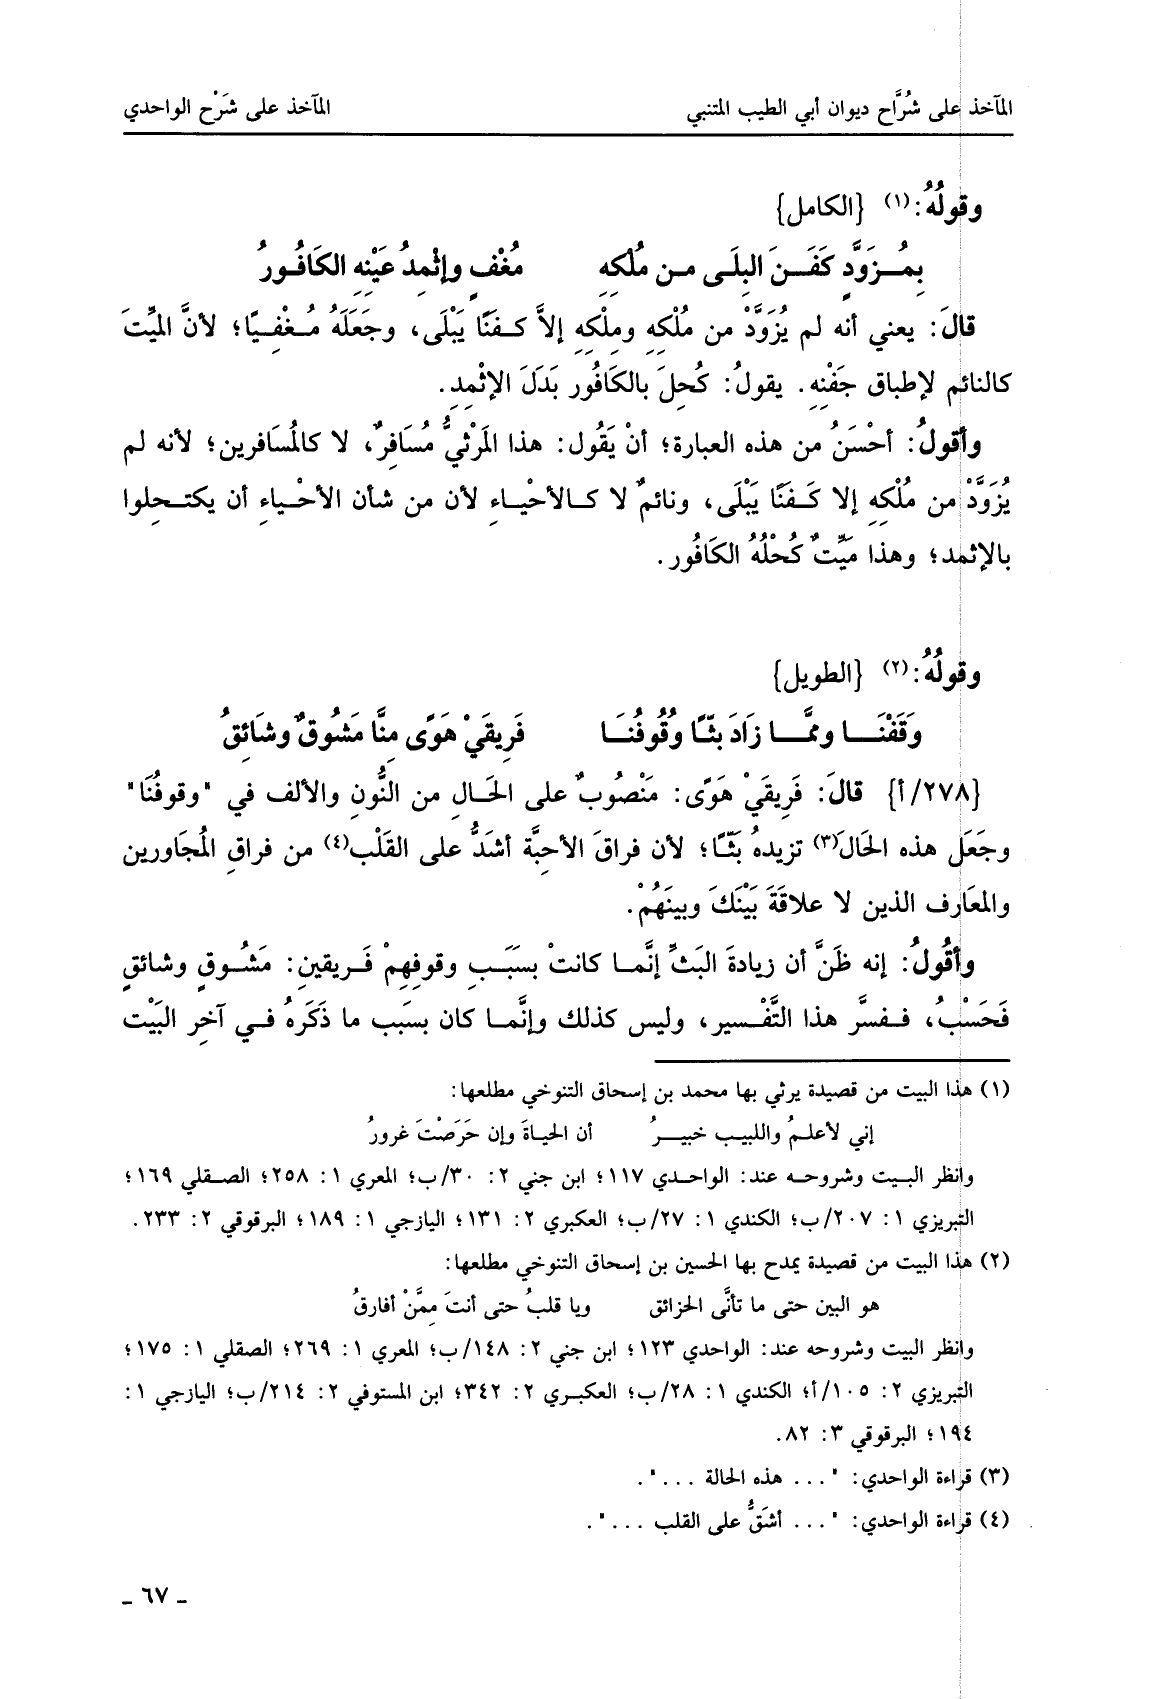 المآخذ على شُرَّاح ديوان أبي الطيب المتنبي المآخذ على شَرْح الواحدي
وقولُهُ:(١) {الكامل}
بِمُـزَوَّدٍ كَفَـنَ البِلَـى مـن مُلْكِهِ مُغْفٍ وإثْمِدُ عَيْنِهِ الكَافُـورُ
قالَ: يعني أنه لم يُزَوَّدْ من مُلْكِهِ ومِلْكِهِ إلاَّ كـفنًا يَبْلَى، وجَعَلَهُ مُـغْفِـيًا؛ لأنَّ الميِّتَ
كالنائم لإطباق جَفْنِهِ. يقولُ: كُحِلَ بالكَافُور بَدَلَ الإثْمِدِ.
وأقولُ: أحْسَنُ من هذه العبارة؛ أنْ يَقُول: هذا المَرْثِيُّ مُسَافِرٌ، لا كالمُسَافرين؛ لأنه لم
يُزَوَّدْ من مُلْكِهِ إلا كَـفَنًا يَبْلَى، ونائمٌ لا كـالأحْيـاءِ لأن من شأن الأحْياءِ أن يكتـحِلوا
بالإثمد؛ وهذا مَيِّتٌ كُحْلُهُ الكَافُور.
وقولُهُ:(٢) {الطويل}
وَقَفْنَـــا وممَّـــا زَادَ بثّـًا وُقُوفُنَــا فَرِيقَيْ هَوًى مِنَّا مَشُوقٌ وشَائِقُ
{٢٧٨/أ} قالَ: فَرِيقَيْ هَوًى: مَنْصُوبٌ على الحَـالِ من النُّونِ والألف في "وقوفُنَا"
وجَعَل هذه الحَال(٣) تزيدهُ بَثّـًا؛ لأن فراقَ الأحِبَّة أشدُّ على القَلْب(٤) من فراقِ المُجَاورين
والمعَارِف الذين لا علاقَةَ بَيْنَكَ وبينَهُمْ.
وأقُولُ: إنه ظَنَّ أن زيادةَ البَثِّ إنَّمـا كانتْ بسَبَـبِ وقوفِهِمْ فَـريقينِ: مَشُـوقٍ وشائقٍ
فَحَسْبُ، فـفسرَّ هذا التَّفْـسير، وليس كذلك وإنَّمـا كان بسَبب ما ذَكَرهُ فـي آخِر البَيْت
(١) هذا البيت من قصيدة يرثي بها محمد بن إسحاق التنوخي مطلعها:
إني لأعلـمُ واللبيـب خبيـــرُ أن الحيـاةَ وإن حَرَصْتَ غرورُ
وانظر البـيت وشروحـه عند: الواحـدي ١١٧؛ ابن جني ٢: ٣٠/ب؛ المعري ١: ٢٥٨؛ الصـقلي ١٦٩؛
التبريزي ١: ٢٠٧/ب؛ الكندي ١: ٢٧/ب؛ العكبري ٢: ١٣١؛ اليازجي ١: ١٨٩؛ البرقوقي ٢: ٢٣٣.
(٢) هذا البيت من قصيدة يمدح بها الحسين بن إسحاق التنوخي مطلعها:
هو البين حتى ما تأنَّى الحزائق ويا قلبُ حتى أنتَ مِمَّنْ أفارقُ
وانظر البيت وشروحه عند: الواحدي ١٢٣؛ ابن جني ٢: ١٤٨/ب؛ المعري ١: ٢٦٩؛ الصقلي ١: ١٧٥؛
التبريزي ٢: ١٠٥/أ؛ الكندي ١: ٢٨/ب؛ العكبـري ٢: ٣٤٢؛ ابن المستوفي ٢: ٢١٤/ب؛ اليازجي ١:
١٩٤؛ البرقوقي ٣: ٨٢.
(٣) قراءة الواحدي: "... هذه الحالة ...".
(٤) قراءة الواحدي: "... أشَقُّ على القلب ...".
ـ ٦٧ ـ